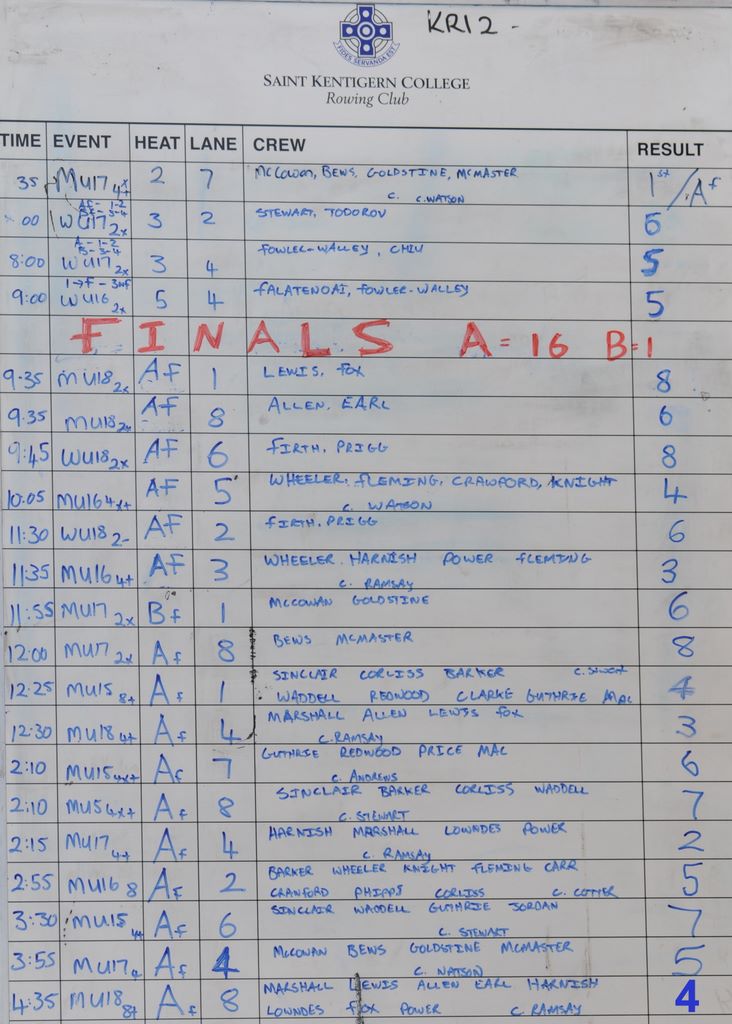 KRI2 -
FIDES SERVANDA EST
SAINT KENTIGERN COLLEGE
Rowing Club
TIME EVENT HEAT LANE CREW RESULT
35 MU17 4+ 2 7 McCOWAN, BEWS, GOLDSTINE, MCMASTER 1st/Af
C. C.WATSON
00 WU17 2x 3 2 STEWART, TODOROV 6
A - 1-2
B - 3-4
8:00 WU17 2x 3 4 FOWLER-WALLEY, CHIU 5
9:00 WU16 2x 5 4 FALATENOAI, FOWLER-WALLEY 5
FINALS A = 16 B=1
9.35 MU18 2x Af 1 LEWIS, FOX 8
9.35 MU18 2x Af 8 ALLEN, EARL 6
9:45 WU18 2x Af 6 FIRTH, PRIGG 8
10.05 MU16 4x+ Af 5 WHEELER, FLEMING, CRAWFORD, KNIGHT 4
C. WATSON
11:30 WU18 2- Af 2 FIRTH, PRIGG 6
11:35 MU16 4+ Af 3 WHEELER. HARNISH POWER FLEMING 3
C. RAMSAY
11:55 MU17 2x Bf 1 MCCOWAN GOLDSTINE 6
12:00 MU17 2x Af 8 BEWS MCMASTER 8
12:25 MU15 8+ Af 1 SINCLAIR CORLISS BARKER 4
WADDELL REDWOOD CLARKE GUTHRIE MAC
12:30 MU18 4+ Af 4 MARSHALL ALLEN LEWIS FOX 3
C.RAMSAY
2:10 MU15 4x+ Af 7 GUTHRIE REDWOOD PRICE MAC 6
C. ANDREWS
2:10 MU5 4x+ Af 8 SINCLAIR BARKER CORLISS WADDELL 7
C. STEWART
2:15 MU17 4+ Af 4 HARNISH MARSHALL LOWNDES POWER 2
C. RAMSAY
2:55 MU16 8 Af 2 BARKER WHEELER KNIGHT FLEMING CARR 5
CRAWFORD PHIPPS CORLISS C. COTTER
3:30 MU15 4+ Af 6 SINCLAIR WADDELL GUTHRIE JORDAN 7
C. STEWART
3:55 MU17 4 Af 4 MCCOWAN BEWS GOLDSTINE MCMASTER 5
C. WATSON
4:35 MU18 8+ Af 8 MARSHALL LEWIS ALLEN EARL HARNISH 4
LOWNDES FOX POWER C. RAMSAY